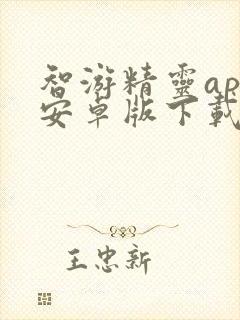 智游精靈ap
安卓版下載
王忠新